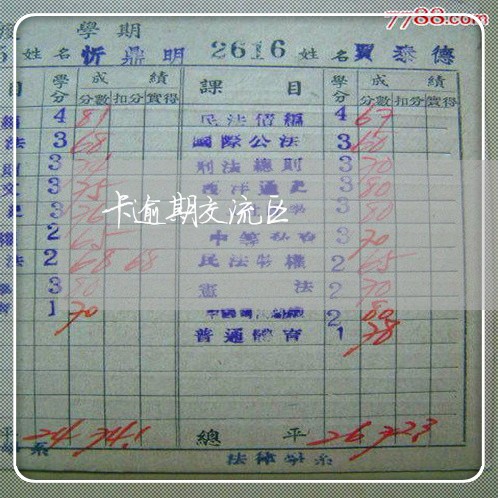 7788.com
學期
姓名 忻鼎明 2616 姓名 賈泰德
目 學分 成績 課目 學分 成績
分數 扣分 實得 分數 扣分 實得
4 81 民法債編 4 67
法 3 68 國際公法 3 60
3 刑法總則 3 70
3 75 西洋通史 3 80
3 3 80
2 65 3 70
法 2 68 68 民法物權 2 65
3 80 憲法 2 70
1 70 2 80
普通體育 1 78
卡逾期交流区
平 24 74.1 總平 26 72.3
系 法律學系